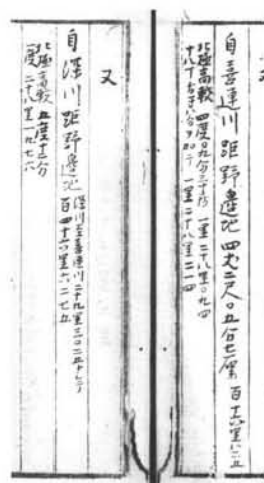 自喜連川距野邊地 四丈二尺〇五分七厘 百十六里
北極高較 四度〇九分三十秒 一里二十八里〇九四
一里二十八里二一四
又
自深川距野邊地
深川至喜連川二十九里三〇二五
百四十六里六二七五
北極高較 五度十三分
一度二十八里一九七六